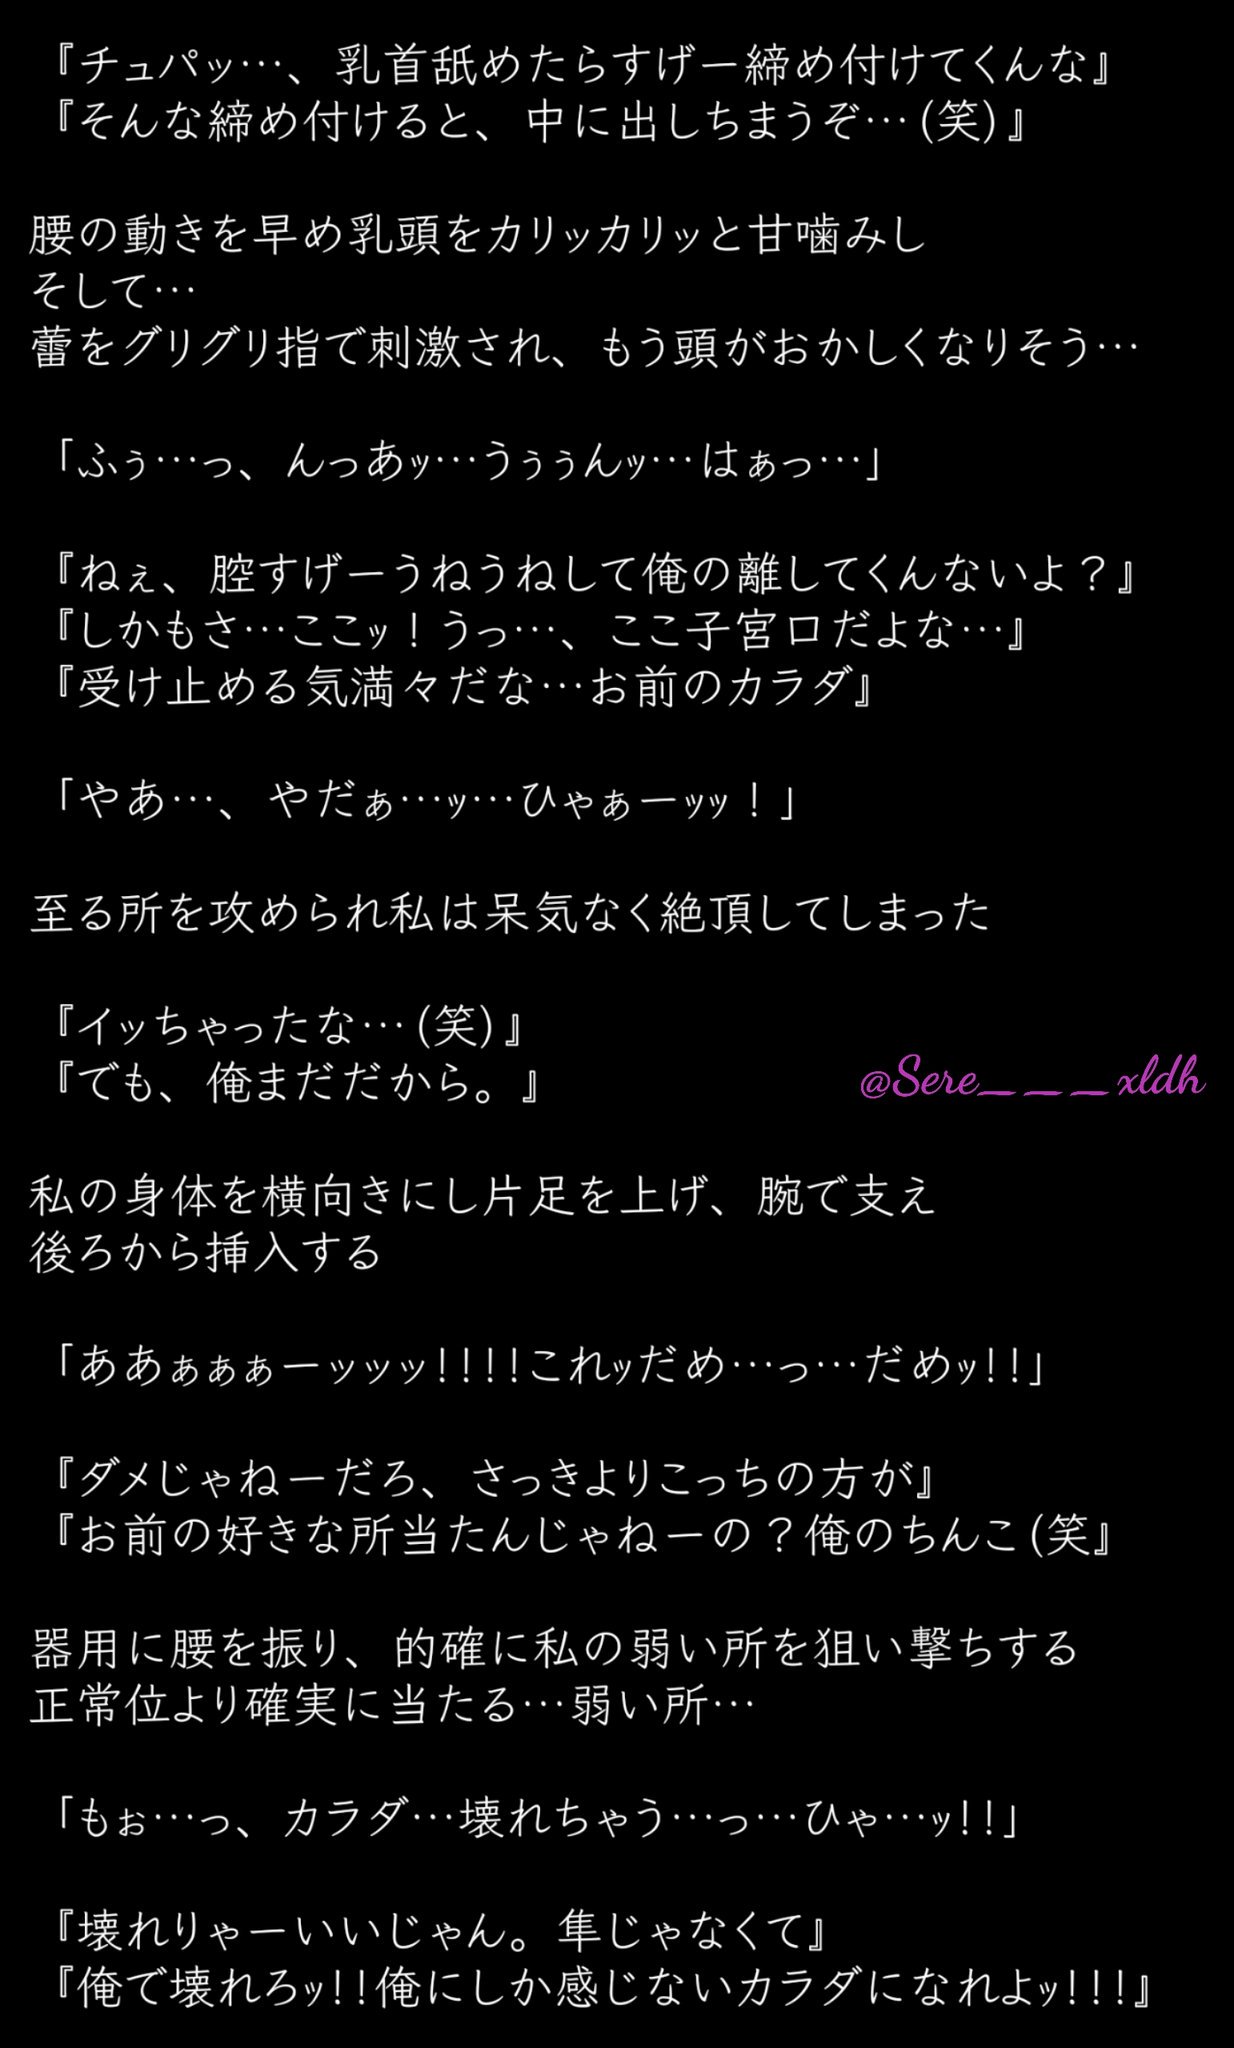 『チュパッ…、乳首舐めたらすげー締め付けてくんな』
『そんな締め付けると、中に出しちまうぞ…(笑)』
腰の動きを早め乳頭をカリッカリッと甘噛みし
そして…
蕾をグリグリ指で刺激され、もう頭がおかしくなりそう…
「ふぅ…っ、んっあｯ…うぅぅんｯ…はぁっ…」
『ねぇ、腔すげーうねうねして俺の離してくんないよ？』
『しかもさ…ここｯ！うっ…、ここ子宮口だよな…』
『受け止める気満々だな…お前のカラダ』
「やあ…、やだぁ…ｯ…ひゃぁーｯｯ！」
至る所を攻められ私は呆気なく絶頂してしまった
『イッちゃったな…(笑)』
『でも、俺まだだから。』
@Sere___xldh
私の身体を横向きにし片足を上げ、腕で支え
後ろから挿入する
「ああぁぁぁーッッッ!!!!これｯだめ…っ…だめｯ!!」
『ダメじゃねーだろ、さっきよりこっちの方が』
『お前の好きな所当たんじゃねーの？俺のちんこ(笑』
器用に腰を振り、的確に私の弱い所を狙い撃ちする
正常位より確実に当たる…弱い所…
「もぉ…っ、カラダ…壊れちゃう…っ…ひゃ…ｯ!!」
『壊れりゃーいいじゃん。隼じゃなくて』
『俺で壊れろｯ!!俺にしか感じないカラダになれよｯ!!!』